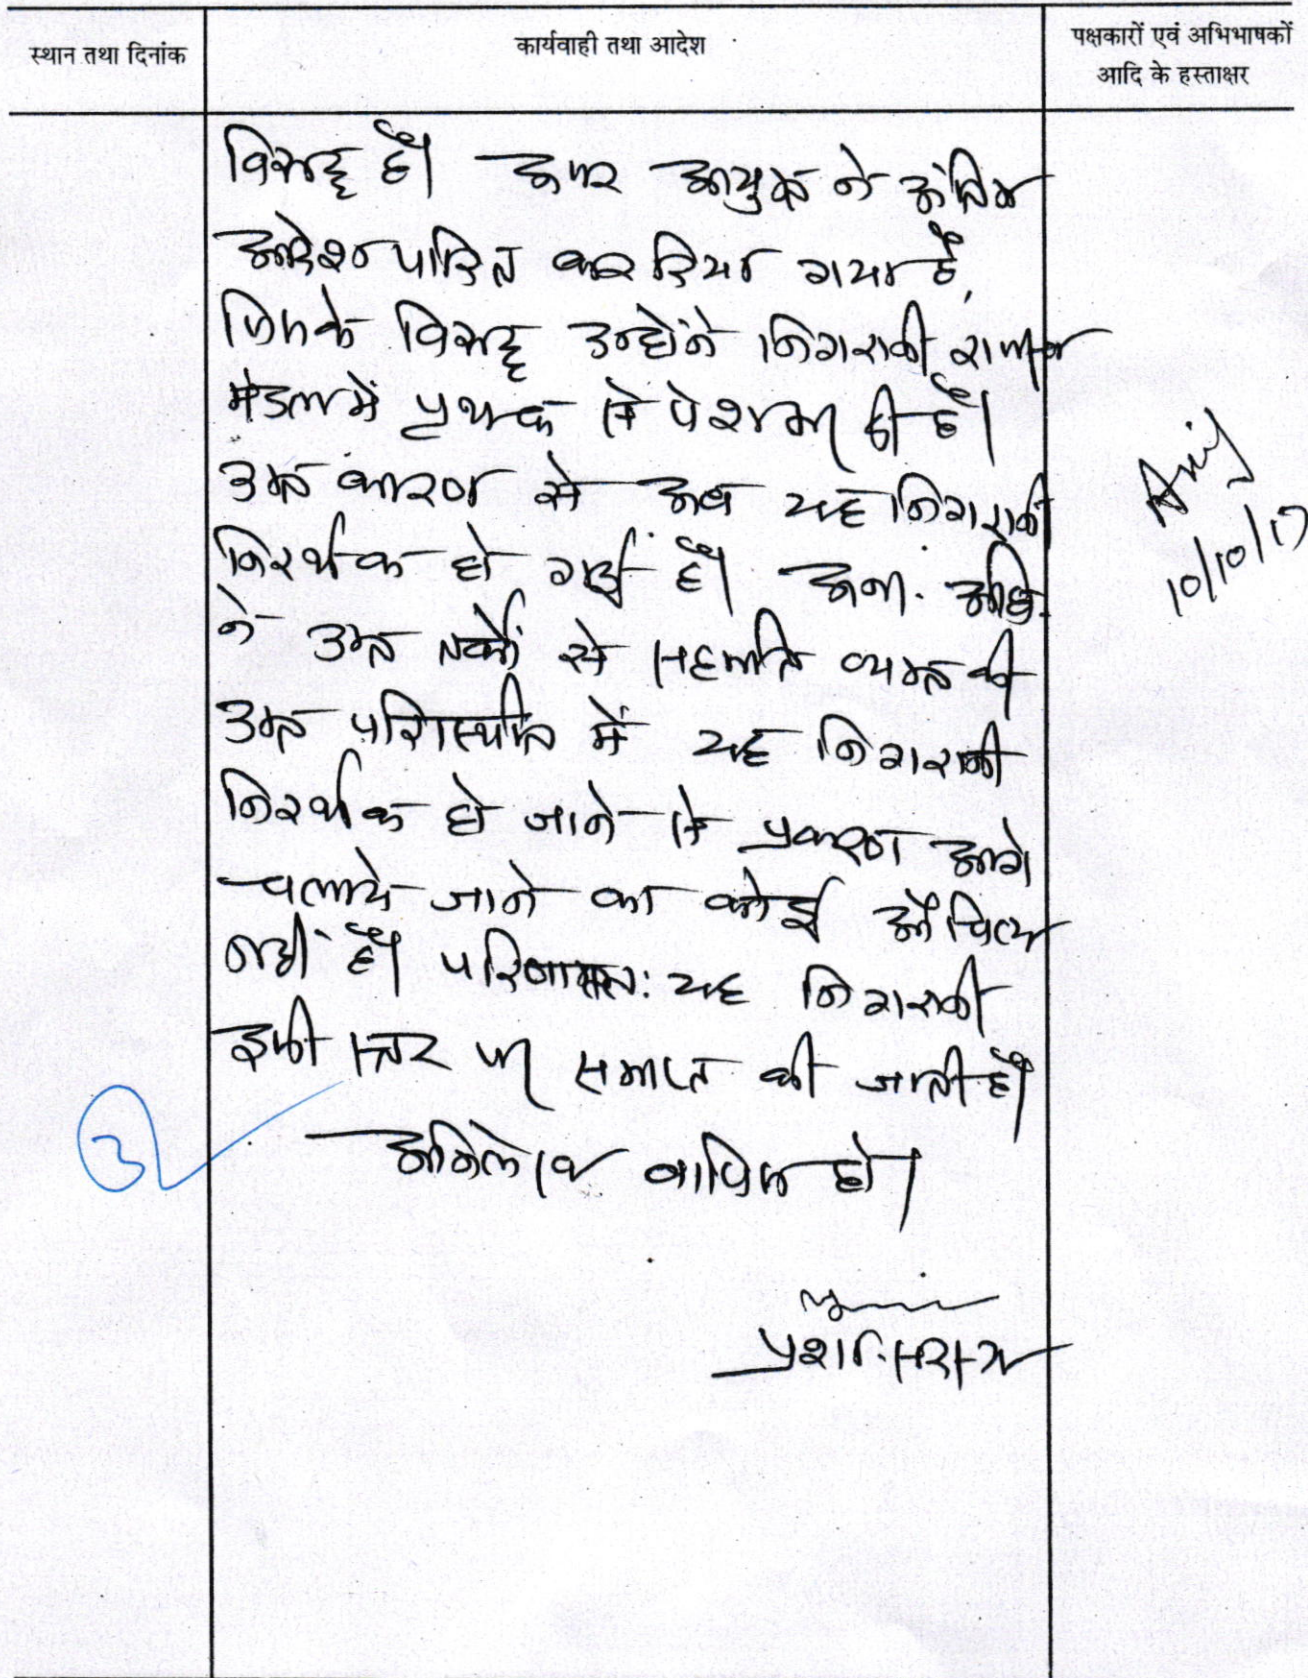 स्थान तथा दिनांक
कार्यवाही तथा आदेश
पक्षकारों एवं अभिभाषकों
आदि के हस्ताक्षर
विरूद्ध है। अपर आयुक्त ने अंतिम
आदेश पारित कर दिया गया है,
जिसके विरूद्ध उन्होंने निगरानी राजस्व
मंडल में पृथक से पेश कर दी है।
उक्त कारण से अब यह निगरानी
निरर्थक हो गई है। अना. अधि.
ने उक्त तर्कों से सहमति व्यक्त की
उक्त परिस्थिति में यह निगरानी
निरर्थक हो जाने से प्रकरण आगे
चलाये जाने का कोई औचित्य
नहीं है। परिणामतः यह निगरानी
इसी स्तर पर समाप्त की जाती है।
अभिलेख वापिस हो।
प्रशा. सदस्य
10/10/17
3